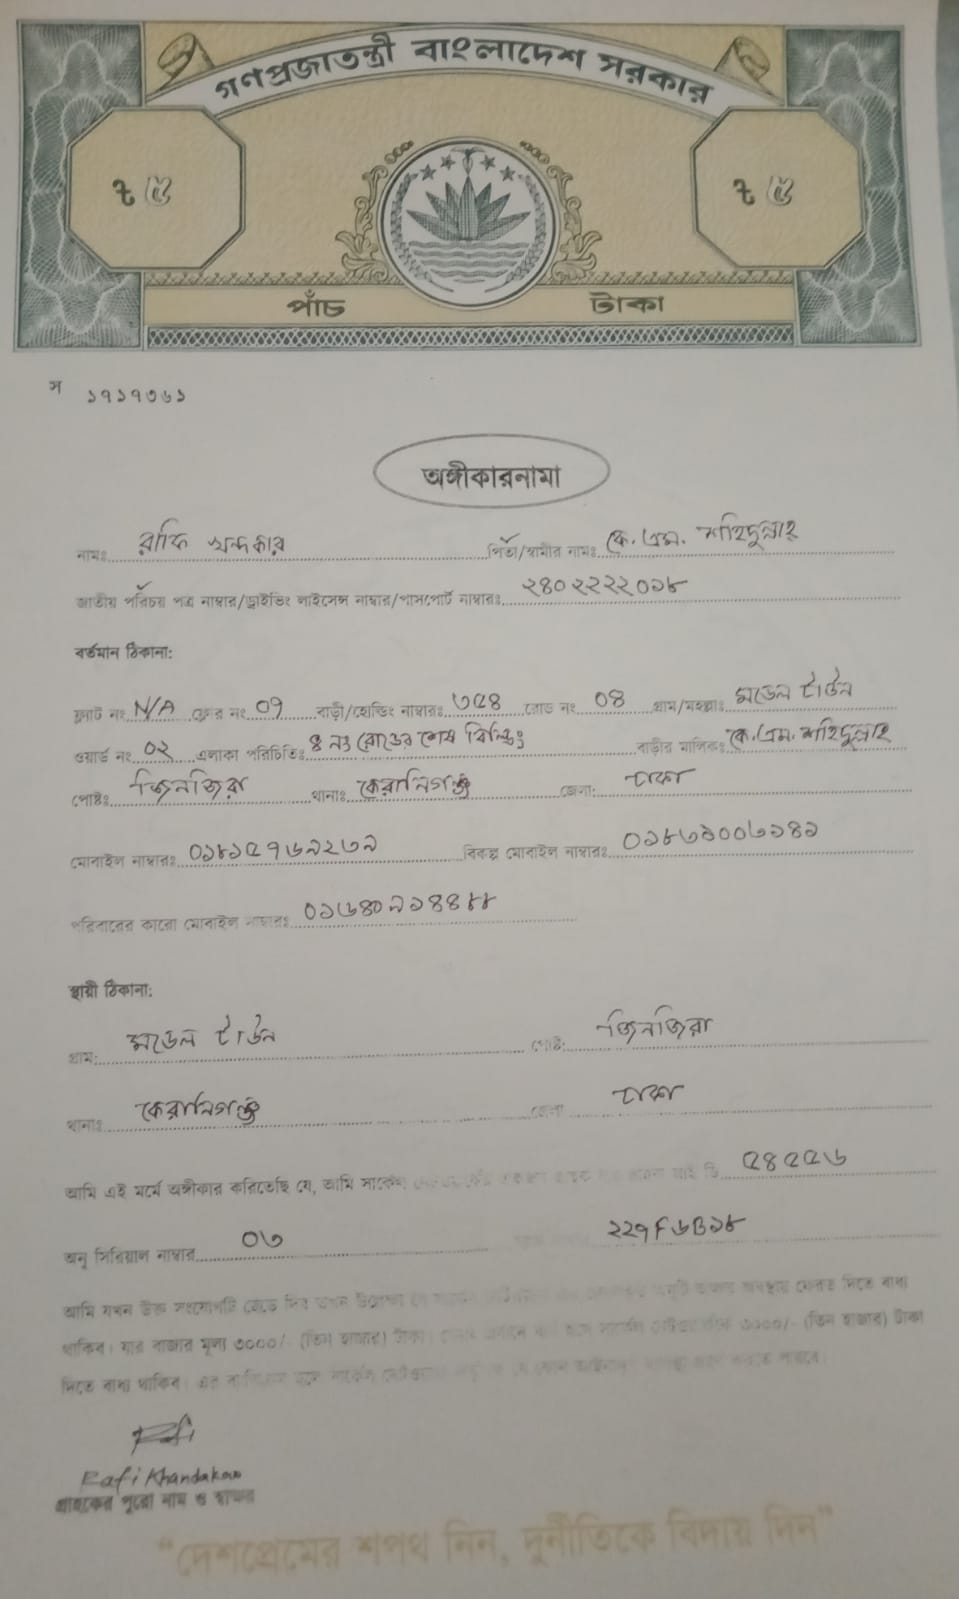 গণপ্রজাতন্ত্রী বাংলাদেশ সরকার
৳ ৫ ৳ ৫
পাঁচ টাকা
স ১৭১৭৩৬১
অঙ্গীকারনামা
নামঃ রাফি খন্দকার পিতা/স্বামীর নামঃ কে. এম. শহিদুল্লাহ
জাতীয় পরিচয় পত্র নাম্বার/ড্রাইভিং লাইসেন্স নাম্বার/পাসপোর্ট নাম্বারঃ ২৪০২২২২০১৮
বর্তমান ঠিকানা:
ফ্লাট নং N/A ফ্লোর নং ০৭ বাড়ী/হোল্ডিং নাম্বারঃ ৩৫৪ রোড নং ০৪ গ্রাম/মহল্লাঃ মডেল টাউন
ওয়ার্ড নং ০২ এলাকা পরিচিতিঃ ৪ নং রোডের শেষ বিল্ডিং বাড়ীর মালিকঃ কে. এম. শহিদুল্লাহ
পোষ্টঃ জিনজিরা থানাঃ কেরানিগঞ্জ জেলা: ঢাকা
মোবাইল নাম্বারঃ ০১৮১৫৭৬৯২৩৯ বিকল্প মোবাইল নাম্বারঃ
পরিবারের কারো মোবাইল নাম্বারঃ
স্থায়ী ঠিকানা:
গ্রাম: মডেল টাউন পোষ্ট: জিনজিরা
থানাঃ কেরানিগঞ্জ জেলা ঢাকা
আমি এই মর্মে অঙ্গীকার করিতেছি যে, আমি সার্কেল আই ডি ৫৪৫৫৬
অনু সিরিয়াল নাম্বার ০৬ ২২৭F৬B১৮
আমি যখন উক্ত সংযোগটি ছেড়ে দিব তখন ফেরত দিতে বাধ্য
থাকিব। যার বাজার মূল্য ৩০০০/- (তিন হাজার) টাকা। ৩০০০/- (তিন হাজার) টাকা
দিতে বাধ্য থাকিব।
Rafi
Rafi Khandakar
গ্রাহকের পুরো নাম ও স্বাক্ষর
“দেশপ্রেমের শপথ নিন, দুর্নীতিকে বিদায় দিন”